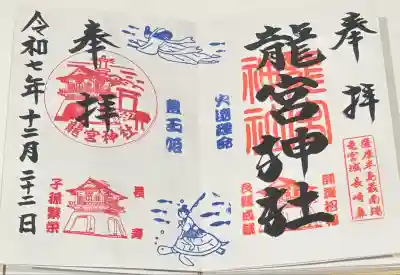 奉拝
龍宮神社
薩摩半島最南端
竜宮城 長崎鼻
開運招福
良縁成就
火遠理命
豊玉姫
奉拝
龍宮神社
長寿
子孫繁栄
令和七年十二月二十二日